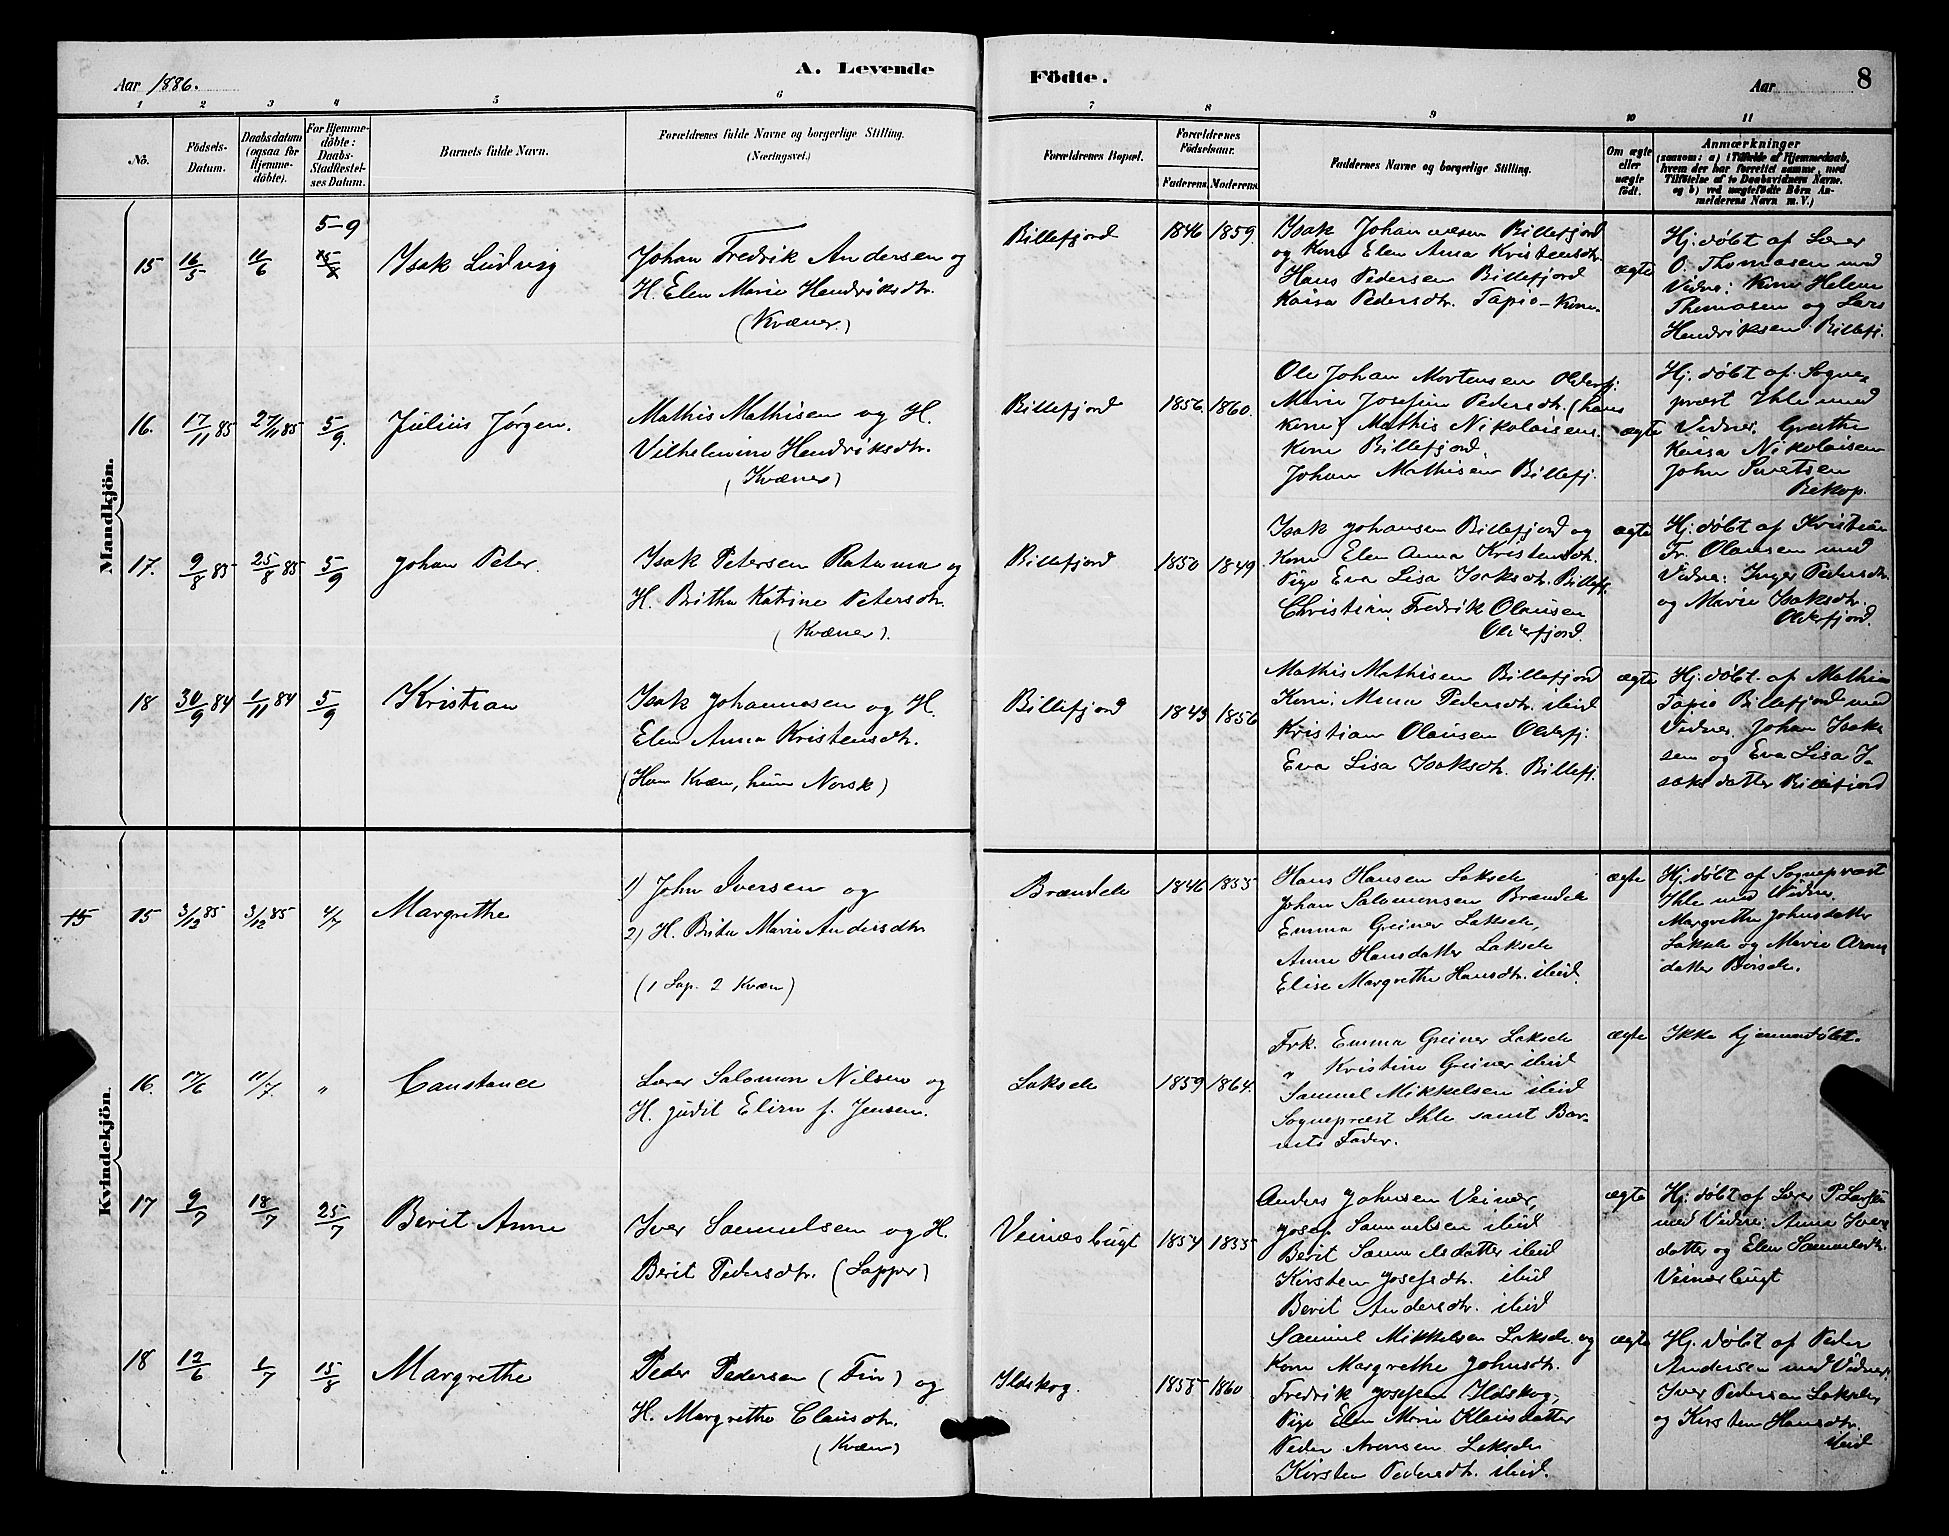 Aar 1886.
A. Levende
Födte.
Aar
8
1 2 3 4 5 6 7 8 9 10 11
No.
Födsels-
Datum.
Daabsdatum
(ogsaa for
Hjemme-
döbte).
For Hjemme-
döbte:
Daabs-
Stadfæstel-
ses Datum.
Barnets fulde Navn.
Forældrenes fulde Navne og borgerlige Stilling.
(Næringsvei.)
Forældrenes Bopæl.
Forældrenes
Födselsaar.
Faderens. Moderens.
Faddernes Navne og borgerlige Stilling.
Om ægte
eller
uægte
födt.
Anmærkninger
(saasom: a) i Tilfælde af Hjemmedaab,
hvem der har forrettet samme, med
Tilföielse af to Daabsvidners Navne.
og b) ved uægtefödte Börn An-
melderens Navn m. V.)
Mandkjön.
15
16/5
11/6
5-9
Isak Ludvig
Johan Fredrik Andersen og
H. Elen Marie Hendriksdtr.
(Kvæner)
Billefjord
1846
1859.
Isak Johannesen Billefjord
og Kone Elen Anna Kristensdtr.
Hans Pedersen Billefjord
Kaisa Pedersdtr. Tapio-Kone.
ægte
Hj. døbt af Lærer
O. Thomasen med
Vidne: Kone Helene
Thomasen og Lars
Hendriksen Billefj.
16.
17/11 85
27/11 85
5/9.
Julius Jørgen.
Mathis Mathisen og H.
Vilhelmine Hendriksdtr.
(Kvæner)
Billefjord
1856.
1860.
Ole Johan Mortensen Olderfj.
Marie Josefine Pedersdtr. (hans
kone) Mathis Nikolaisens
Kone Billefjord,
Johan Mathisen Billefj.
ægte
Hj. døbt af Sogne-
præst Ihle med
Vidner. Grethe
Kaisa Nikolaisen
John Swetsen
Bekop.
17.
9/8 85
25/8 85
5/9
Johan Peter.
Isak Petersen Ratama og
H. Britha Katrine Petersdtr.
(Kvæner).
Billefjord
1850
1849
Isak Johansen Billefjord og
Kone Elen Anna Kristensdtr.
Pige Eva Lisa Isaksdtr. Billefj.
Christian Fredrik Olausen
Olderfjord.
ægte
Hj. døbt af Kristian
Fr. Olausen med
Vidne: Inger Pedersdtr.
og Marie Isaksdtr.
Olderfjord.
18
30/9 84
1/11 84
5/9
Kristian
Isak Johannesen og H.
Elen Anna Kristensdtr.
(Han Kvæn, hun Norsk)
Billefjord
1843
1856
Mathis Mathisen Billefjord
Kone Mina Pedersdtr. ibid
Kristian Olausen Olderfj.
Eva Lisa Isaksdtr. Billefj.
ægte
Hj. døbt af Mathis
Tapio Billefjord med
Vidner, Johan Isak
sen og Eva Lisa I-
saksdatter Billefjord
Kvindekjön.
15 15
3/12 85
3/12 85
4/7
Margrethe
1) John Iversen og
2) H. Brita Marie Andersdtr.
(1 Lap. 2 Kvæn)
Brændelv
1846
1855
Hans Hansen Lakselv
Johan Salomonsen Brændelv
Emma Greiner Lakselv,
Anne Hansdatter Lakselv
Elise Margrethe Hansdtr. ibid.
ægte
Hj. døbt af Sognepræst
Ihle med Vidne
Margrethe Johnsdatter
Lakselv og Marie Arons
datter Børselv.
16.
17/6
11/7.
"
Constance
Lærer Salomon Nilsen og
H. Judit Elina f. Jensen.
Lakselv
1859
1864.
Frk. Emma Greiner Lakselv
" Kristine Greiner ibid
Samuel Mikkelsen ibid
Sognepræst Ihle samt Bar-
nets Fader.
ægte
Ikke hjemmedøbt.
17
9/7
18/7
25/7
Berit Anne
Iver Samuelsen og H.
Berit Pedersdtr. (Lapper)
Veinesbugt
1854
1855
Anders Johnsen Veines,
Josef Samuelsen ibid
Berit Samuelsdatter ibid
Kirsten Josefsdtr. ibid
Berit Andersdtr. ibid
ægte
Hj. døbt af Lærer P. Larsen
med Vidne: Anne Ivers
datter og Elen Samuelsdtr.
Veinesbugt
18
12/6
1/7
15/8
Margrethe
Peder Pedersen (Fin) og
H. Margrethe Clausdtr.
(Kvæn)
Ildskog.
1858
1860
Samuel Mikkelsen Lakselv og
Kone Margrethe Johnsdtr.
Fredrik Josefsen Ildskog,
Pige Elen Marie Klausdatter
Peder Aronsen Lakselv
Kirsten Pedersdtr. ibid.
ægte
Hj. døbt af Peder
Andersen med Vidner,
Iver Pedersen Lakselv
og Kirsten Hansdtr.
ibid